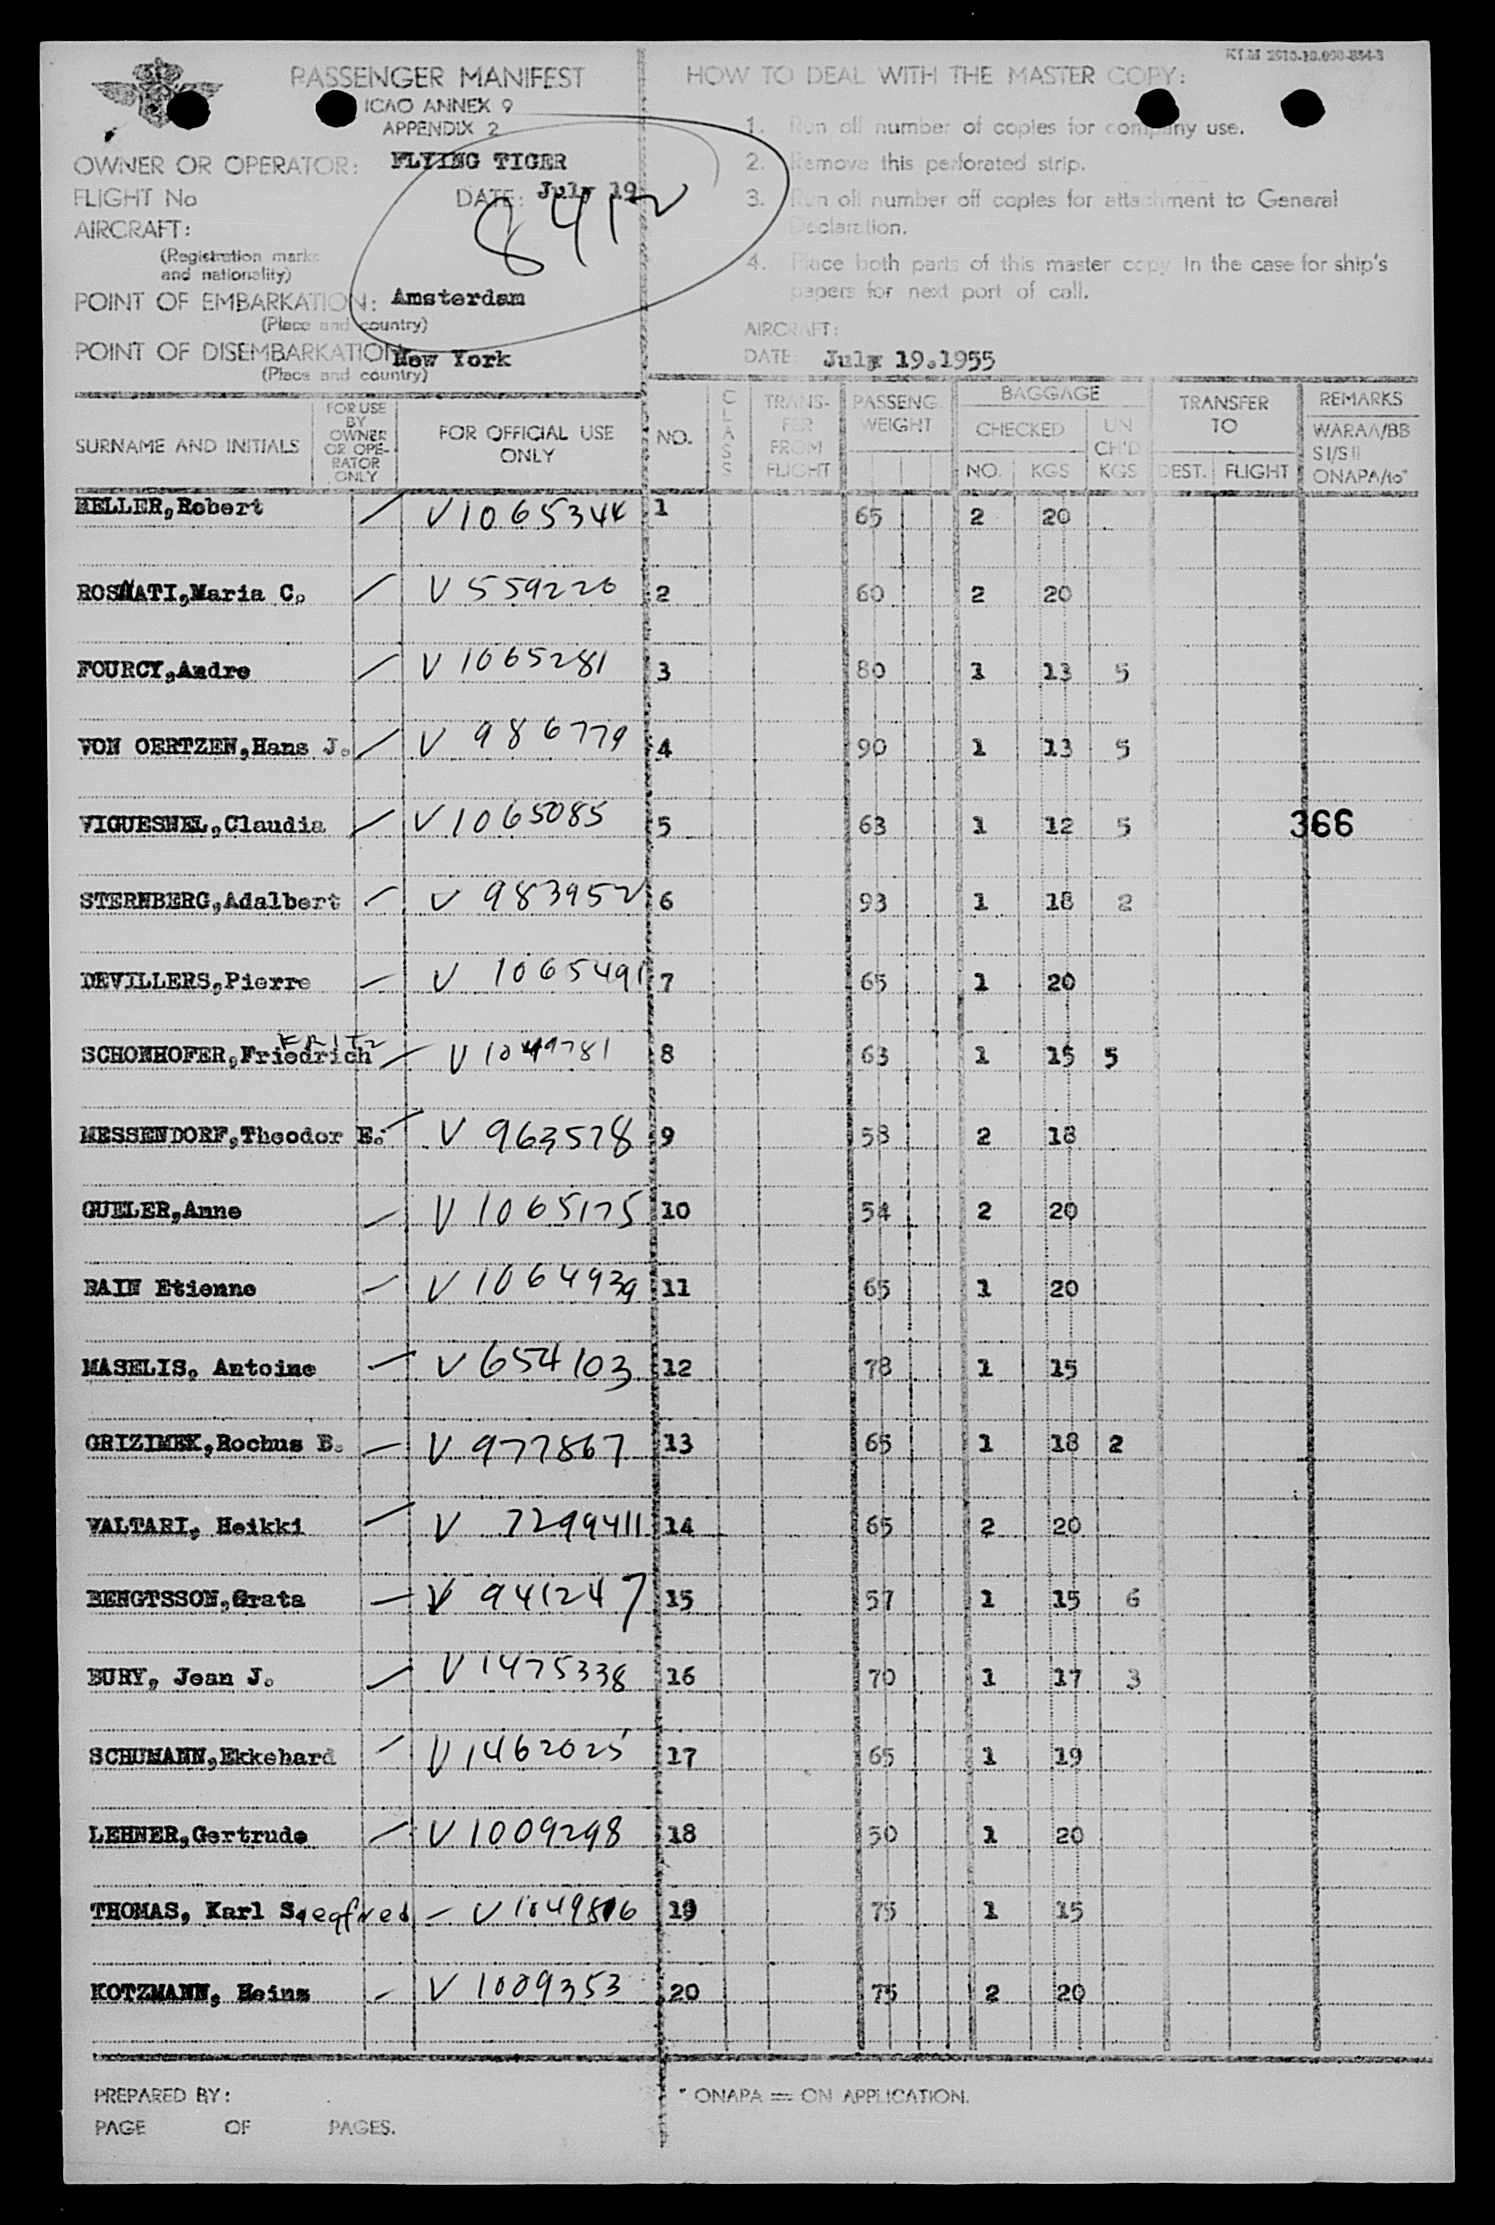 KLM 2610-10.000-854-3
PASSENGER MANIFEST
ICAO ANNEX 9
APPENDIX 2
OWNER OR OPERATOR: FLYING TIGER
FLIGHT No DATE: July 19
8412
AIRCRAFT:
(Registration marks
and nationality)
POINT OF EMBARKATION: Amsterdam
(Place and country)
POINT OF DISEMBARKATION New York
(Place and country)
HOW TO DEAL WITH THE MASTER COPY:
1. Run off number of copies for company use.
2. Remove this perforated strip.
3. Run off number off copies for attachment to General
Declaration.
4. Place both parts of this master copy in the case for ship's
papers for next port of call.
AIRCRAFT:
DATE: July 19.1955
SURNAME AND INITIALS
FOR USE
BY
OWNER
OR OPE-
RATOR
ONLY
FOR OFFICIAL USE
ONLY
NO.
CLASS
TRANS-
FER
FROM
FLIGHT
PASSENG.
WEIGHT
BAGGAGE
CHECKED
NO. KGS
UN
CH'D
KGS
TRANSFER
TO
DEST. FLIGHT
REMARKS
WARAA/BB
SI/SII
ONAPA/to*
HELLER,Robert / V 1065344 1 65 2 20
ROSNATI,Maria C. / V 559220 2 60 2 20
FOURCY,Andre / V 1065281 3 80 1 13 5
VON OERTZEN,Hans J. / V 986779 4 90 1 13 5
VIGUESNEL,Claudia / V 1065085 5 63 1 12 5 366
STERNBERG,Adalbert / V 983952 6 93 1 18 2
DEVILLERS,Pierre / V 1065491 7 65 1 20
FRITZ
SCHONHOFER,Friedrich / V 1049781 8 63 1 15 5
MESSENDORF,Theodor E. / V 963578 9 58 2 18
GUELER,Anne / V 1065175 10 54 2 20
BAIN Etienne / V 1064939 11 65 1 20
MASELIS, Antoine / V 654103 12 78 1 15
GRIZIMEK,Rochus B. / V 977867 13 65 1 18 2
VALTARI, Heikki / V 7299411 14 65 2 20
BENGTSSON,Grata / V 941247 15 57 1 15 6
BURY, Jean J. / V 1475338 16 70 1 17 3
SCHUMANN,Ekkehard / V 1462025 17 65 1 19
LEHNER,Gertrude / V 1009298 18 50 1 20
THOMAS, Karl Siegfried / V 1049816 19 75 1 15
KOTZMANN, Heinz / V 1009353 20 75 2 20
PREPARED BY:
PAGE OF PAGES.
* ONAPA = ON APPLICATION.